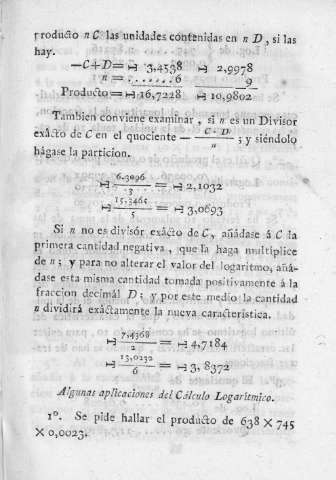 producto n C las unidades contenidas en n D, si las
hay.
—C+D= ⊢ 3,4538 ⊢ 2,9978
n = . . . . . . 6 9
Producto = ⊢ 16,7228 ⊢ 10,9802
Tambien conviene examinar, si n es un Divisor
exâcto de C en el quociente — C + D / n ; y siéndolo
hágase la particion.
⊢ 6.3096 / 3 = ⊢ 2,1032
⊢ 15.3465 / 5 = ⊢ 3,0693
Si n no es divisór exâcto de C, añádase á C la
primera cantidad negativa, que la haga multiplice
de n; y para no alterar el valor del logaritmo, aña-
dase esta misma cantidad tomada positivamente á la
fraccion decimál D; y por este medio la cantidad
n dividirá exâctamente la nueva característica.
⊢ 7,4368 / 2 = ⊢ 4,7184
⊢ 13,0232 / 6 = ⊢ 3, 8372
Algunas aplicaciones del Cálculo Logaritmico.
1º. Se pide hallar el producto de 638 × 745
× 0,0023.